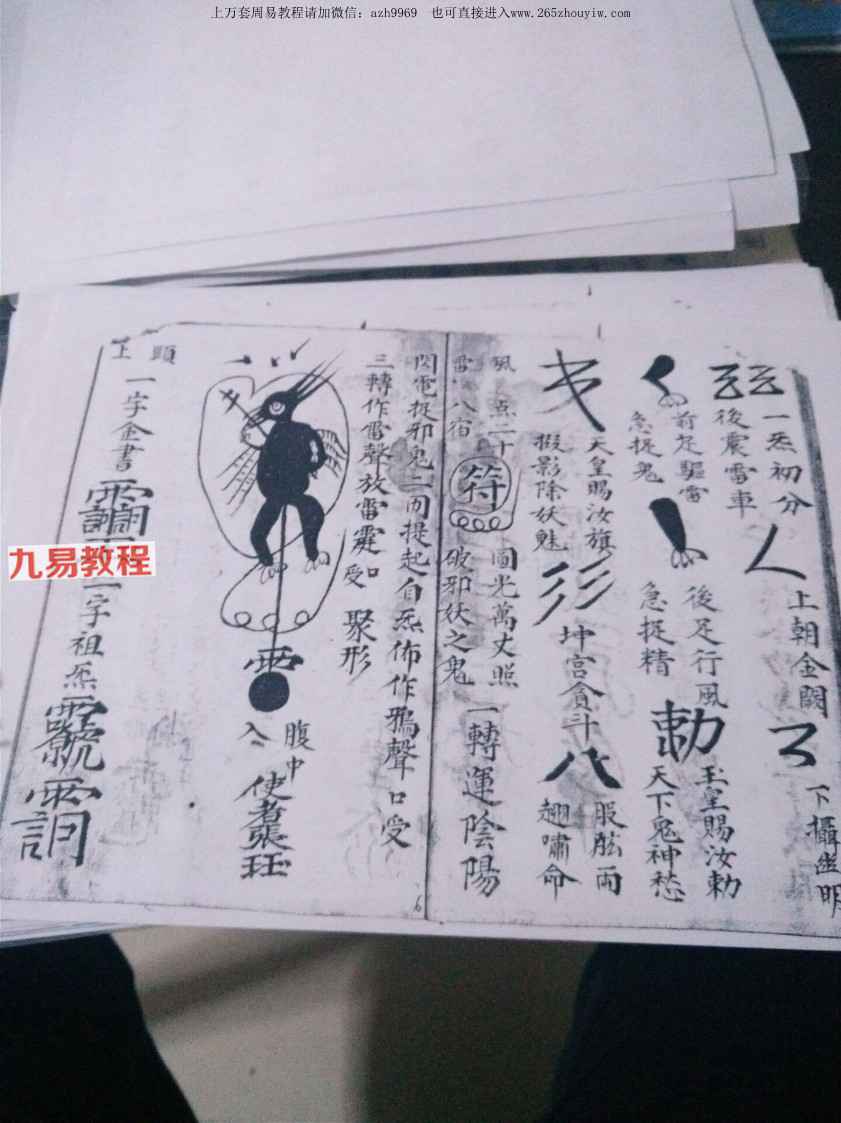 上万套周易教程请加微信：azh9969 也可直接进入www.265zhouyiw.com
一炁初分
後震雷車
人
上朝金闕
了
下攝幽明
前足驅雷
急捉鬼
後足行風
急捉精
勅
玉皇賜汝勅
天下鬼神愁
天皇賜汝旗
投影除妖魅
坤宫貪斗
八
股肱両
趐嘯命
風
雷
点二十
八宿
符
圓光萬丈照
破邪妖之鬼
一轉運陰陽
閃電捉邪鬼二向提起自炁佈作鴉聲口受
三轉作雷聲放雷霆口受
聚形
雷
腹中
入
使者張珏
頭上
一字金書
一字祖炁
九易教程
6